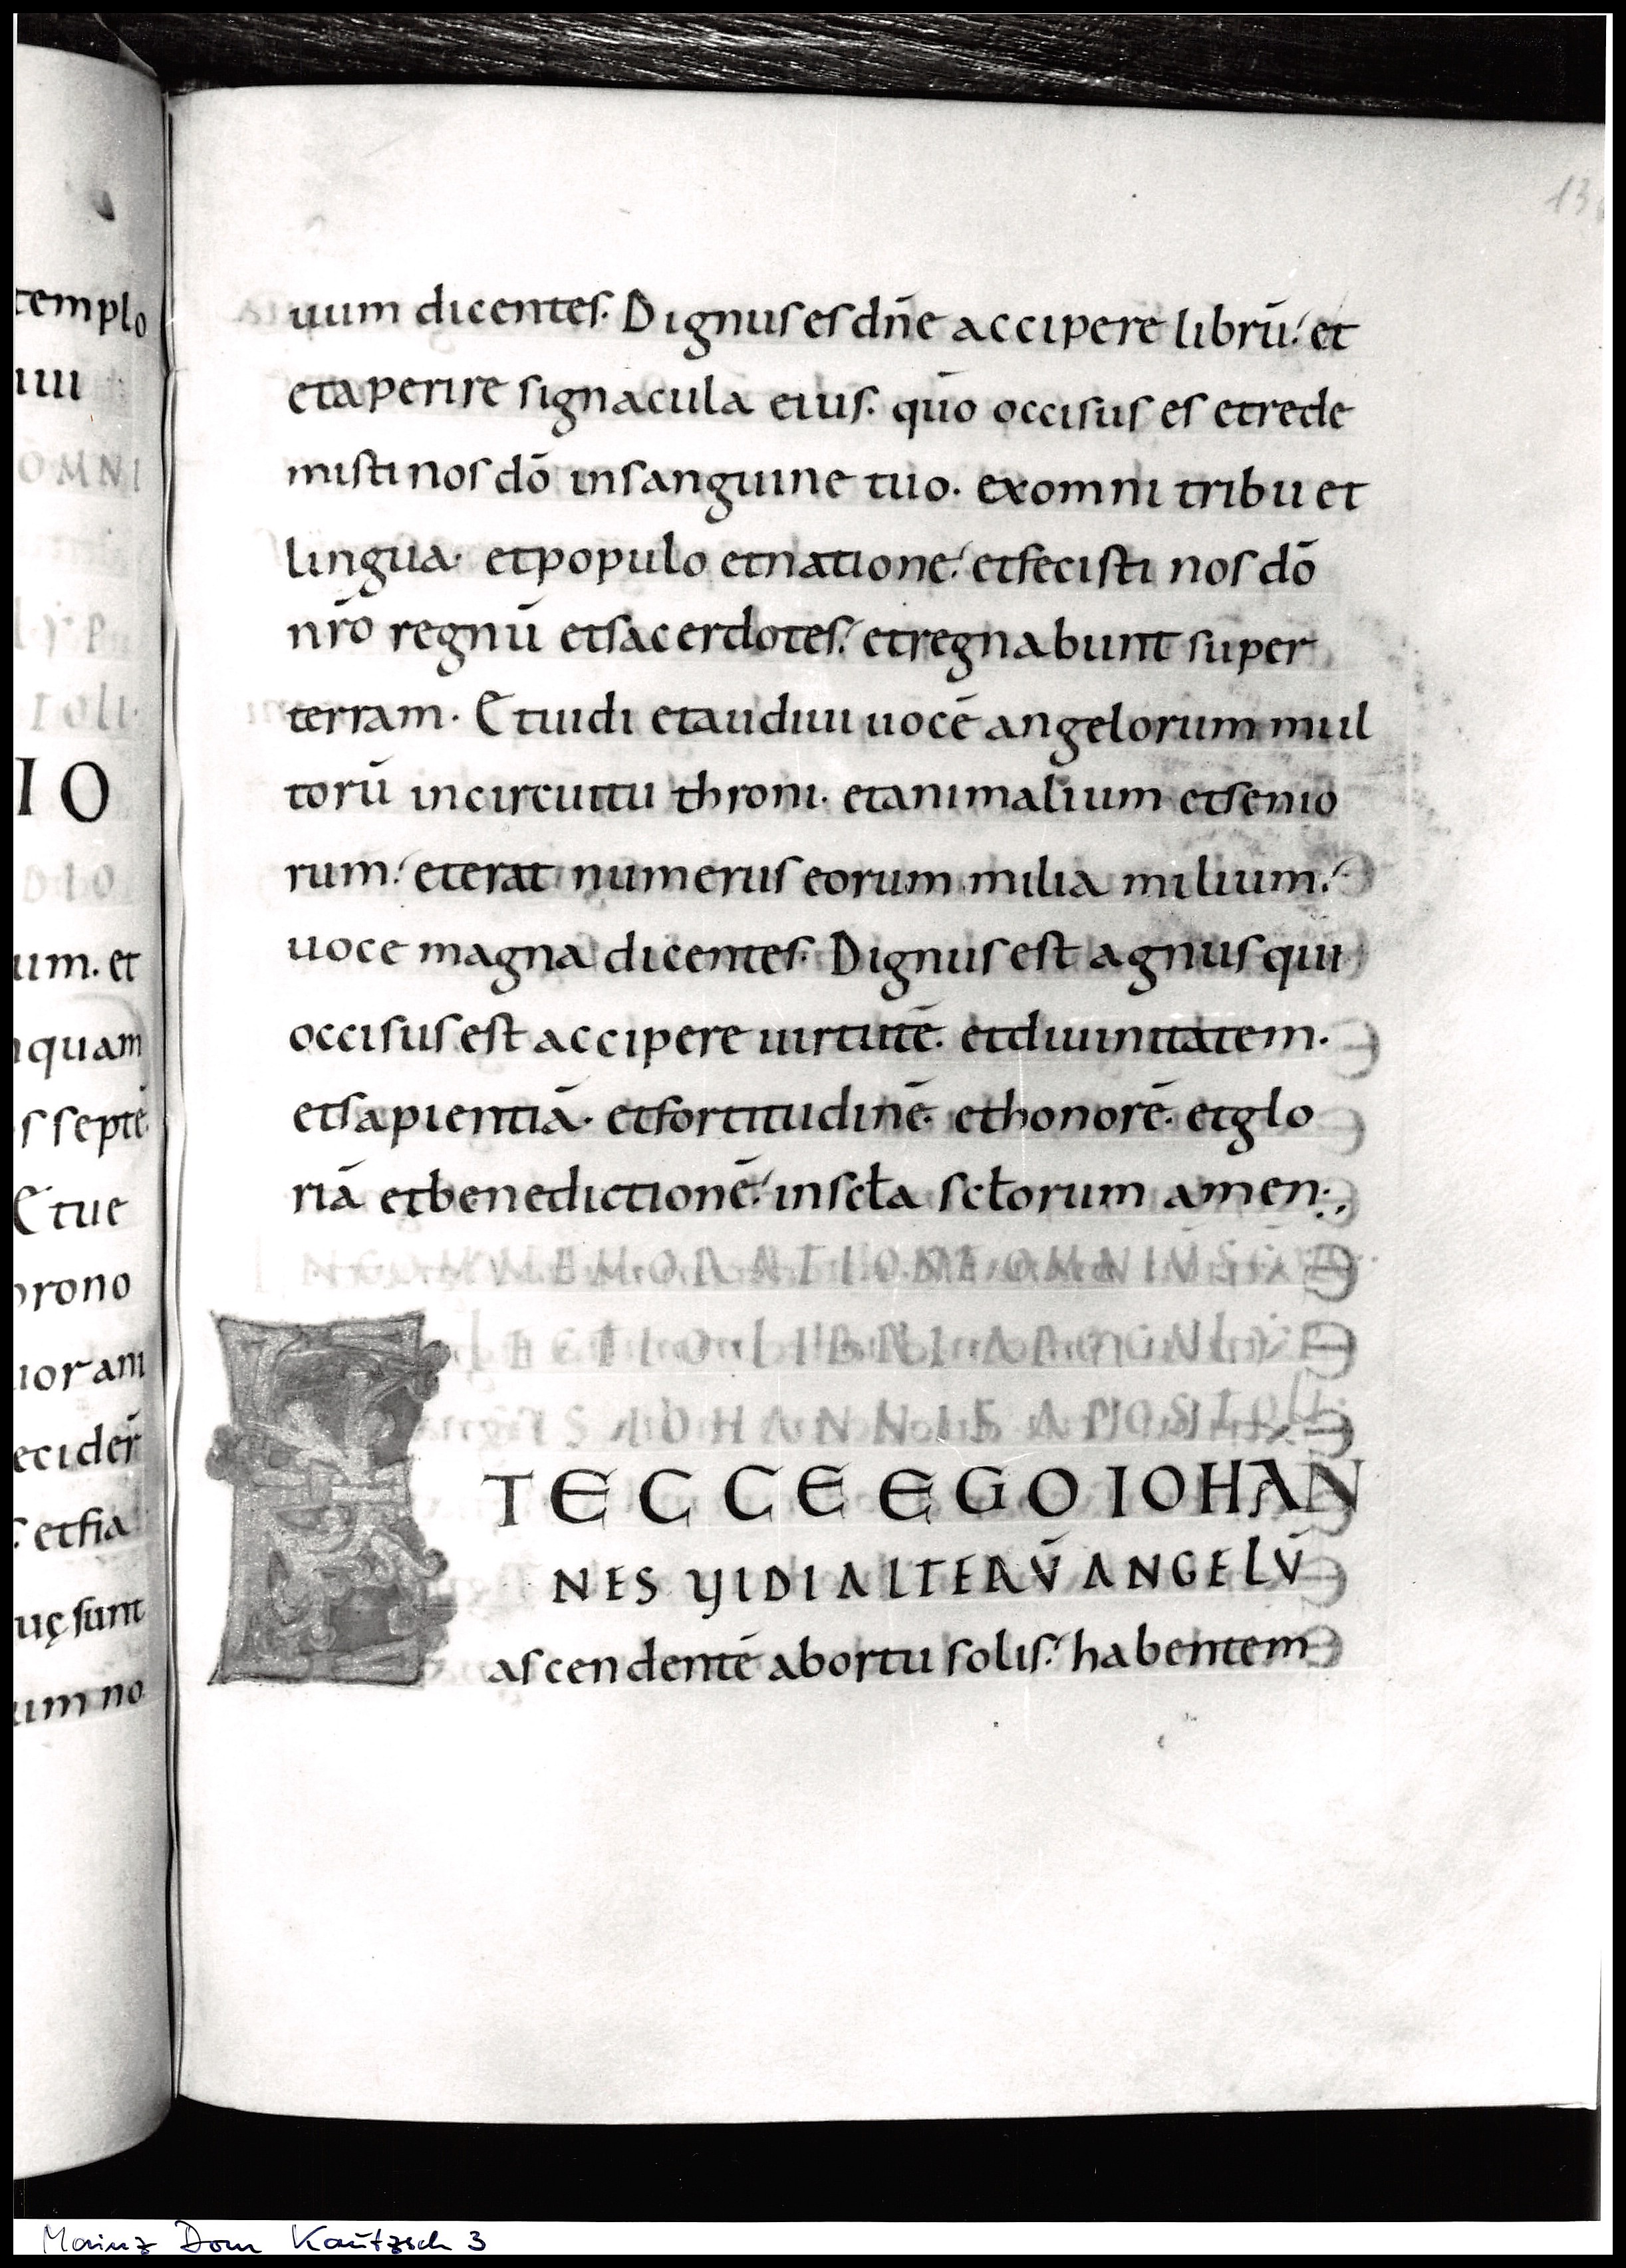 templo
uiii
OMNI
IO
um. et
quam
s septē
Et ue
hrono
ioram
ecider̄
et fia
uę sunt
um no
13
uum dicentes. Dignus es dn̄e accipere librū. et
et aperire signacula eius. quō occisus es et rede
misti nos dō in sanguine tuo. ex omni tribu et
lingua. et populo et natione. et fecisti nos dō
nr̄o regnū et sacerdotes. et regnabunt super
terram. Et uidi et audiui uocē angelorum mul
torū in circuitu throni. et animalium et senio
rum. et erat numerus eorum milia milium.
uoce magna dicentes. Dignus est agnus qui
occisus est accipere uirtutē. et diuinitatem.
et sapientiā. et fortitudinē. et honorē. et glo
riā et benedictionē. in scła scłorum amen.
IN COMMEMORATIONE OMNIUM
LECTIO LIBRI APOCALYP
SIS IOHANNIS APOSTOLI.
ET ECCE EGO IOHAN
NES VIDI ALTERŪ ANGELŪ
ascendentē ab ortu solis. habentem
Mainz Dom Kautzsch 3